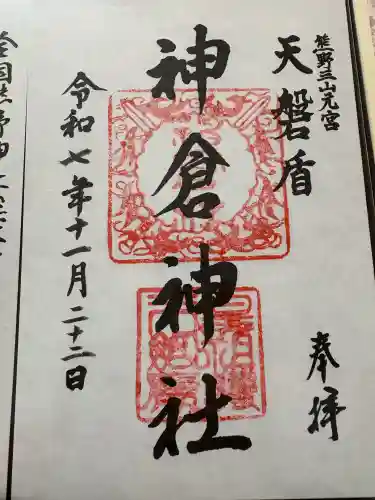 熊野三山元宮
天磐盾
奉拝
神倉神社
令和七年十一月二十二日